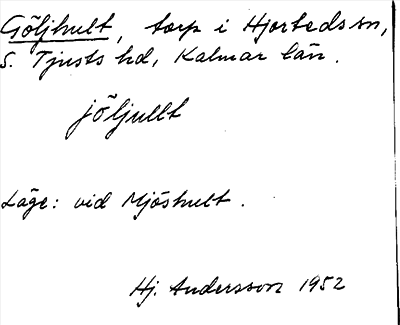 Göljhult, torp i Hjorteds sn,
S. Tjusts hd, Kalmar län.
jöljullt
Läge: vid Mjöshult.
Hj. Andersson 1952